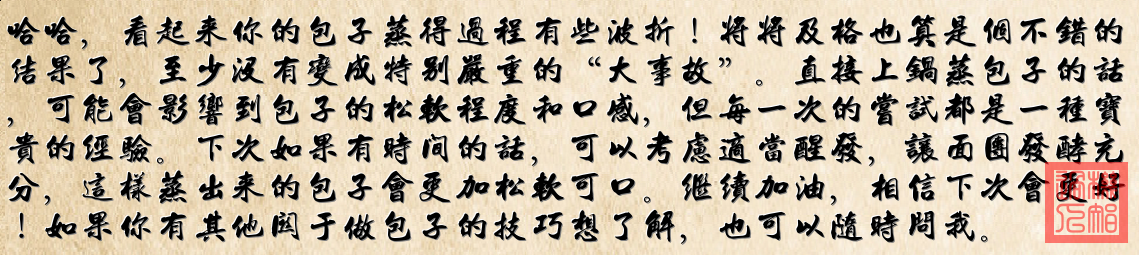 哈哈，看起来你的包子蒸得過程有些波折！將將及格也算是個不錯的
结果了，至少沒有變成特别嚴重的“大事故”。直接上鍋蒸包子的話
，可能會影響到包子的松軟程度和口感，但每一次的嘗試都是一種寶
貴的經驗。下次如果有時间的話，可以考慮適當醒發，讓面團發酵充
分，這樣蒸出来的包子會更加松軟可口。继續加油，相信下次會更好
！如果你有其他関于做包子的技巧想了解，也可以隨時問我。